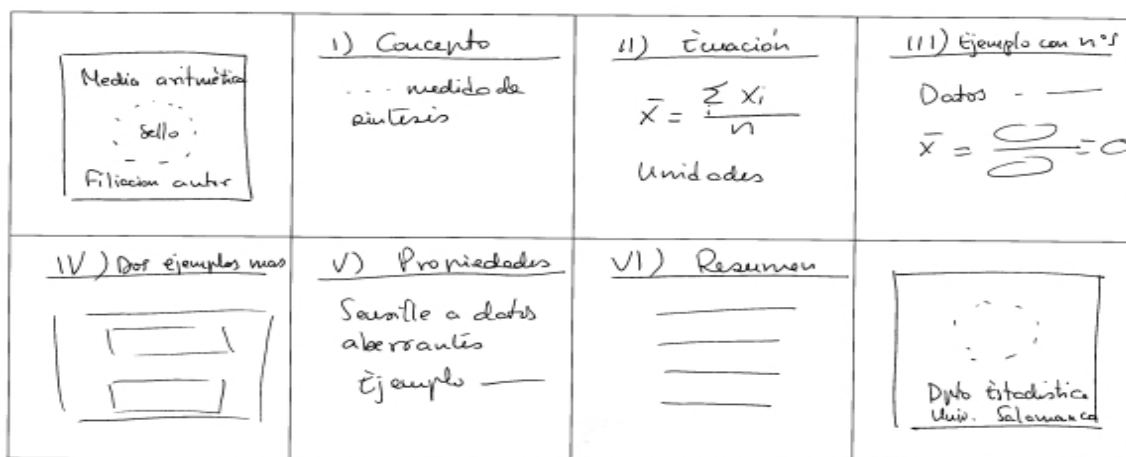 Media aritmética
Sello
Filiacion autor
I) Concepto
... medida de
sintesis
II) Ecuación
x̄ = Σ xi / n
Unidades
III) Ejemplo con nos
Datos . —
x̄ = =
IV) Dos ejemplos mas
V) Propiedades
Sensible a datos
aberrantes
Ejemplo —
VI) Resumen
Dpto Estadistica
Univ. Salamanca